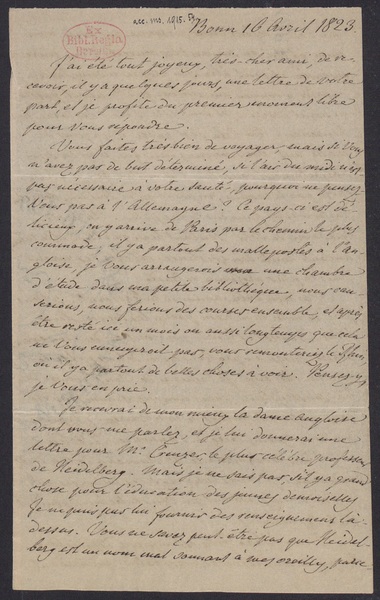 acc. ms. 1915. 59
Bonn 16 Avril 1823.
Ex
Biblioth.
Regia
J'ai été tout joyeux, très-cher ami, de re-
cevoir, il y a quelques jours, une lettre de votre
part, et je profite du premier moment libre
pour vous repondre.
Vous faites très bien de voyager, mais si vous
n'avez pas de but déterminé, si l'air du midi n'est
pas nécessaire à votre santé, pourquoi ne pensez-
vous pas à l'Allemagne? Ce pays-ci est dé-
licieux, on y arrive de Paris par le chemin le plus
commode, il y a partout des malle postes à l'an-
gloise, je vous arrangerois une chambre
d'étude dans ma petite bibliothèque, nous cau-
serions, nous ferions des courses ensemble, et après
être resté ici un mois ou aussi longtemps que cela
ne vous ennuyeroit pas, vous remonteriez le Rhin,
où il y a partout de belles choses à voir. Pensez-y,
je vous en prie.
Je recevrai de mon mieux la dame Angloise
dont vous me parlez, et je lui donnerai une
lettre pour Mr. Creuzer, le plus célèbre professeur
de Heidelberg. Mais je ne sais pas s'il y a grand
chose pour l'éducation des jeunes demoiselles
Je ne puis pas lui fournir des renseignemens là-
dessus. Vous ne savez peut-être pas que Heidel-
berg est un nom mal sonnant à mes oreilles, parce-